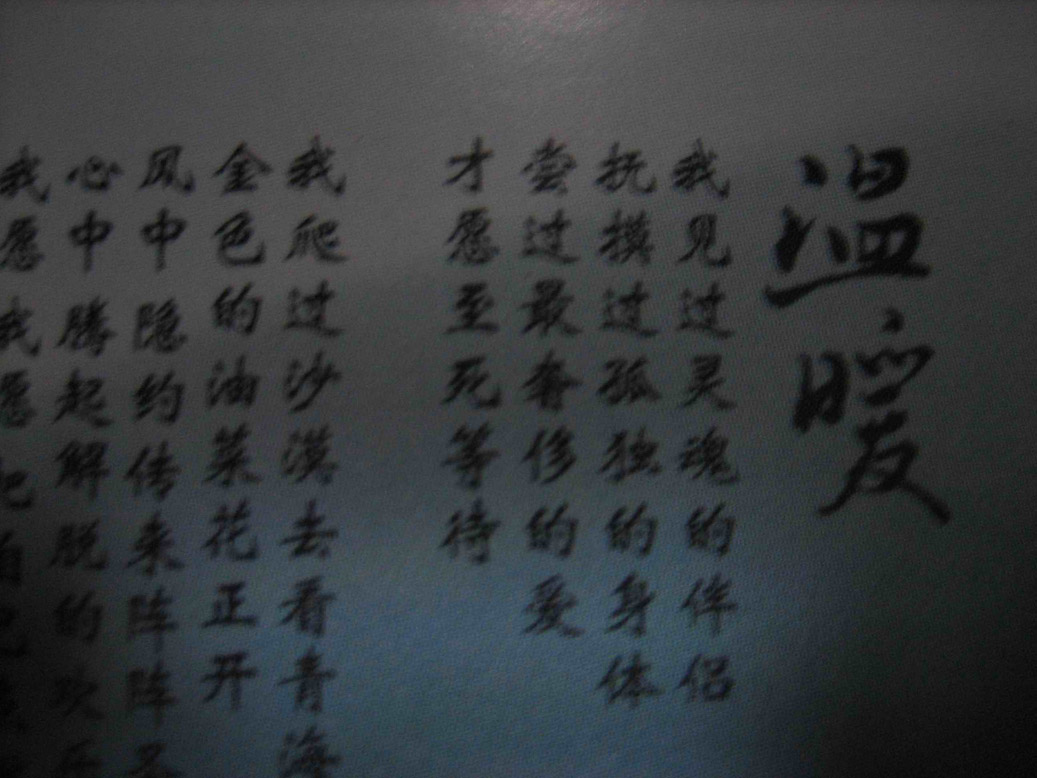 温暖
我见过灵魂的伴侣
抚摸过孤独的身体
尝过最奢侈的爱
才愿至死等待
我爬过沙漠去看青海
金色的油菜花正开
风中隐约传来阵阵
心中腾起解脱的欢乐
我愿我愿把自己